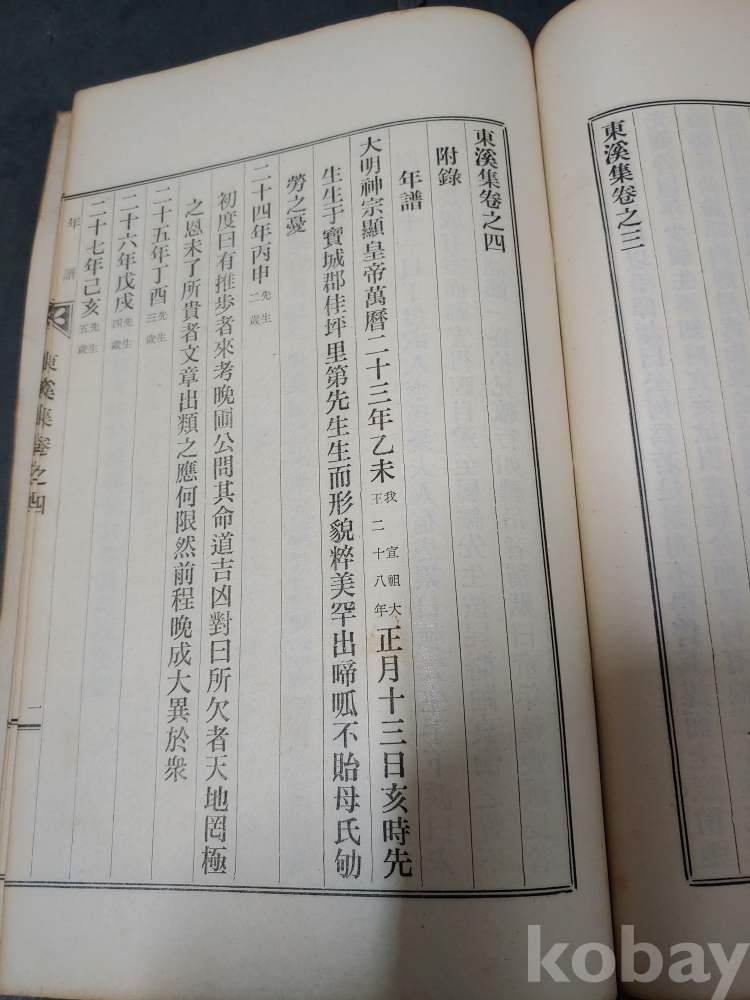 東溪集卷之三
東溪集卷之四
附錄
年譜
大明神宗顯皇帝萬曆二十三年乙未我宣祖大王二十八年正月十三日亥時先
生生于寶城郡佳坪里第先生生而形貌粹美罕出啼呱不貽母氏劬
勞之憂
二十四年丙申先生二歲
初度日有推步者來考晚圃公問其命道吉凶對曰所欠者天地罔極
之恩未了所貴者文章出類之應何限然前程晚成大異於衆
二十五年丁酉先生三歲
二十六年戊戌先生四歲
二十七年己亥先生五歲
年譜
東溪集卷之四
一
kobay